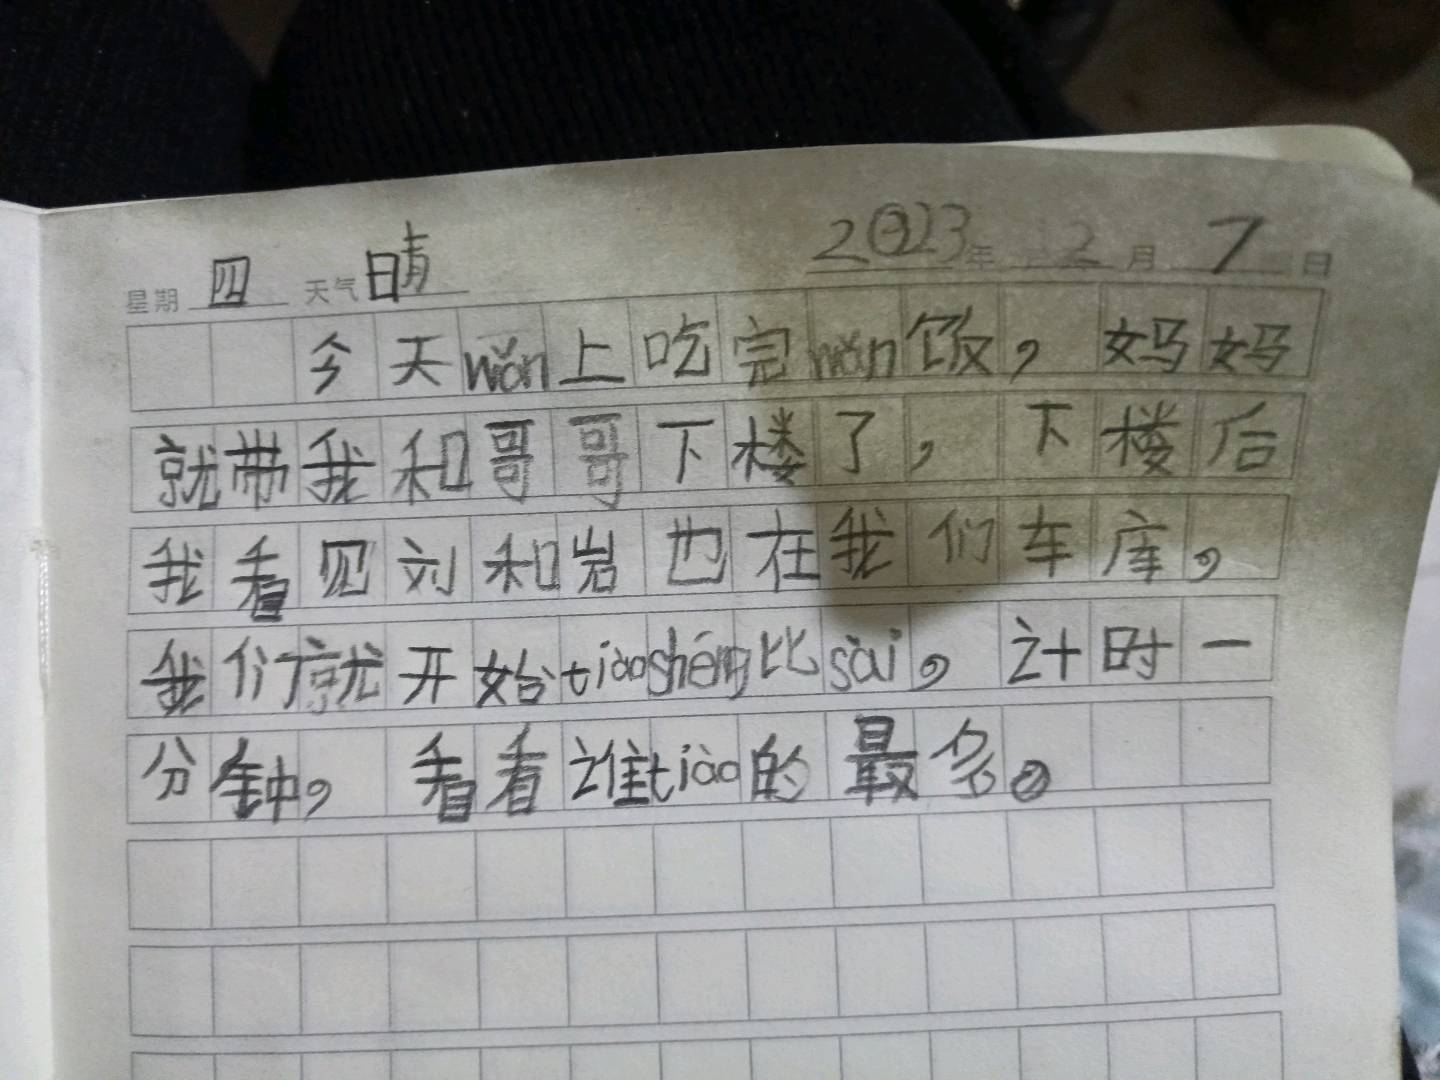 星期 四 天气 晴 2023年 12月 7日
今天wǎn上吃完wǎn饭，妈妈
就带我和哥哥下楼了，下楼后
我看见刘和岩也在我们车库。
我们就开始tiàoshéng比sài。计时一
分钟，看看谁tiào的最多。